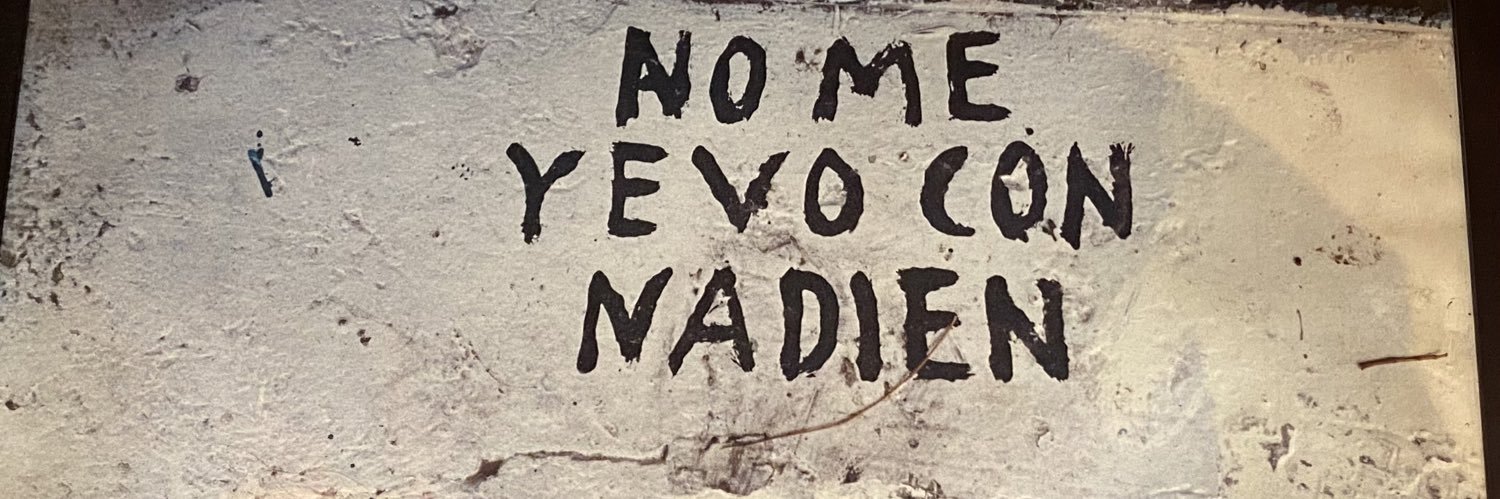 NO ME
YEVO CON
NADIEN